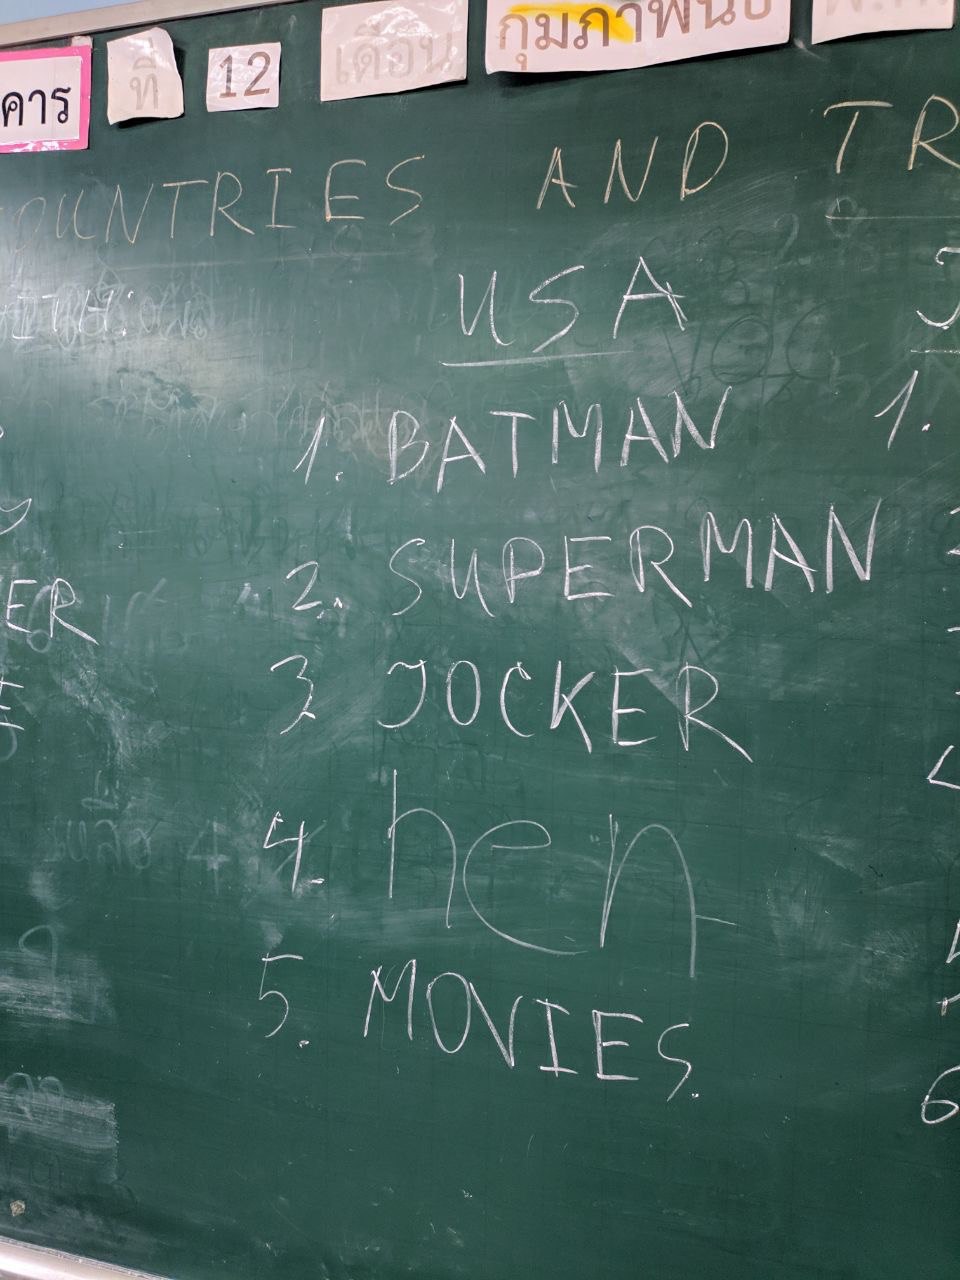 คาร ที่ 12 เดือน กุมภาพันธ์ พ.ศ.
COUNTRIES AND TR
USA
1. BATMAN
1.
2. SUPERMAN
ER
3 JOCKER
4. hen
5. MOVIES
6